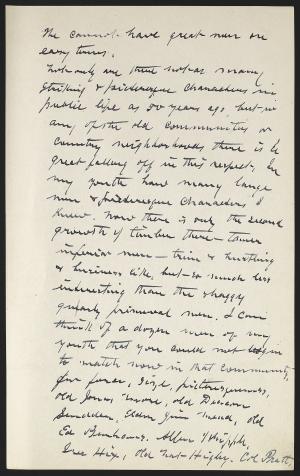 We cannot have great men on
easy terms.
Not only are there not as many
striking & picturesque characters in
public life as 50 years ago but in
any of the old communities or
country neighborhoods there is a
great falling off in this respect. In
my youth how many large
men & picturesque characters I
knew. Now there is only the second
growth of timber there – tamer
inferior men – trim & hustling
& business like, but so much less
interesting than the shaggy
gnarly primeval men. I can
think of a dozen men of my
youth that you could not begin
to match now in that community,
for force, size, picturesqueness,
old Jonas More, old Deacon
Scudder, Elder Jim Mead, old
Ed
old Nat Higby. Col Pratt